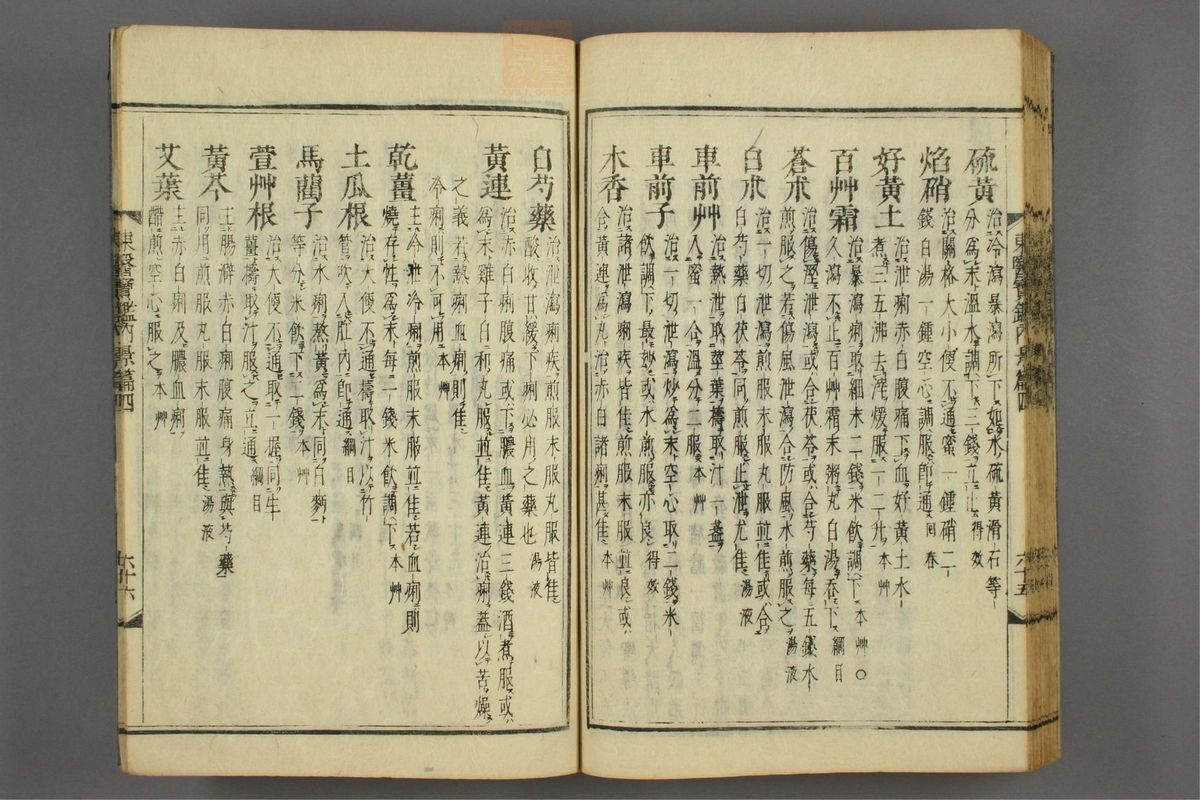 硫黃
治冷瀉暴瀉所下如水硫黃滑石等
分爲末溫水調下三錢立止得效
焰硝
治關格大小便不通蜜一鍾硝二
錢白湯一鍾空心調服卽通回春
好黃土
治泄痢赤白腹痛下血好黃土水
煮三五沸去滓煖服一二升本艸
百艸霜
治暴瀉痢取細末二錢米飮調下本艸○
久瀉不止百艸霜末粥丸白湯吞下綱目
蒼朮
治傷濕泄瀉或合茯苓或合芍藥每五錢水
煎服之若傷風泄瀉合防風水煎服之湯液
白朮
治一切泄瀉煎服末服丸服並佳或合
白芍藥白茯苓同煎服止泄尤佳湯液
車前艸
治熱泄取莖葉擣取汁一盞
入蜜一合溫分二服本艸
車前子
治一切泄瀉炒爲末空心取二錢米
飮調下最妙或水煎服亦良得效
木香
治諸泄瀉痢疾皆佳煎服末服並良或
合黃連爲丸治赤白諸痢甚佳本艸
東醫寶鑑內景篇四
六十五
白芍藥
治泄瀉痢疾煎服末服丸服皆佳
酸收甘緩下痢必用之藥也湯液
黃連
治赤白痢腹痛或下膿血黃連三錢酒煮服或
爲末雞子白和丸服並佳黃連治痢蓋以苦燥
之義若熱痢血痢則佳
冷痢則不可用本艸
乾薑
主冷泄冷痢煎服末服並佳若血痢則
燒存性爲末每一錢米飮調下本艸
土瓜根
治大便不通擣取汁以竹
管吹入肛內卽通綱目
馬藺子
治水痢熬黃爲末同白麪
等分米飮下一錢本艸
萱艸根
治大便不通取一握同生
薑擣取汁服之立通綱目
黃芩
主腸澼赤白痢腹痛身熱與芍藥
同用煎服丸服末服並佳湯液
艾葉
主赤白痢及膿血痢
醋煎空心服之本艸
東醫寶鑑內景篇四
六十六